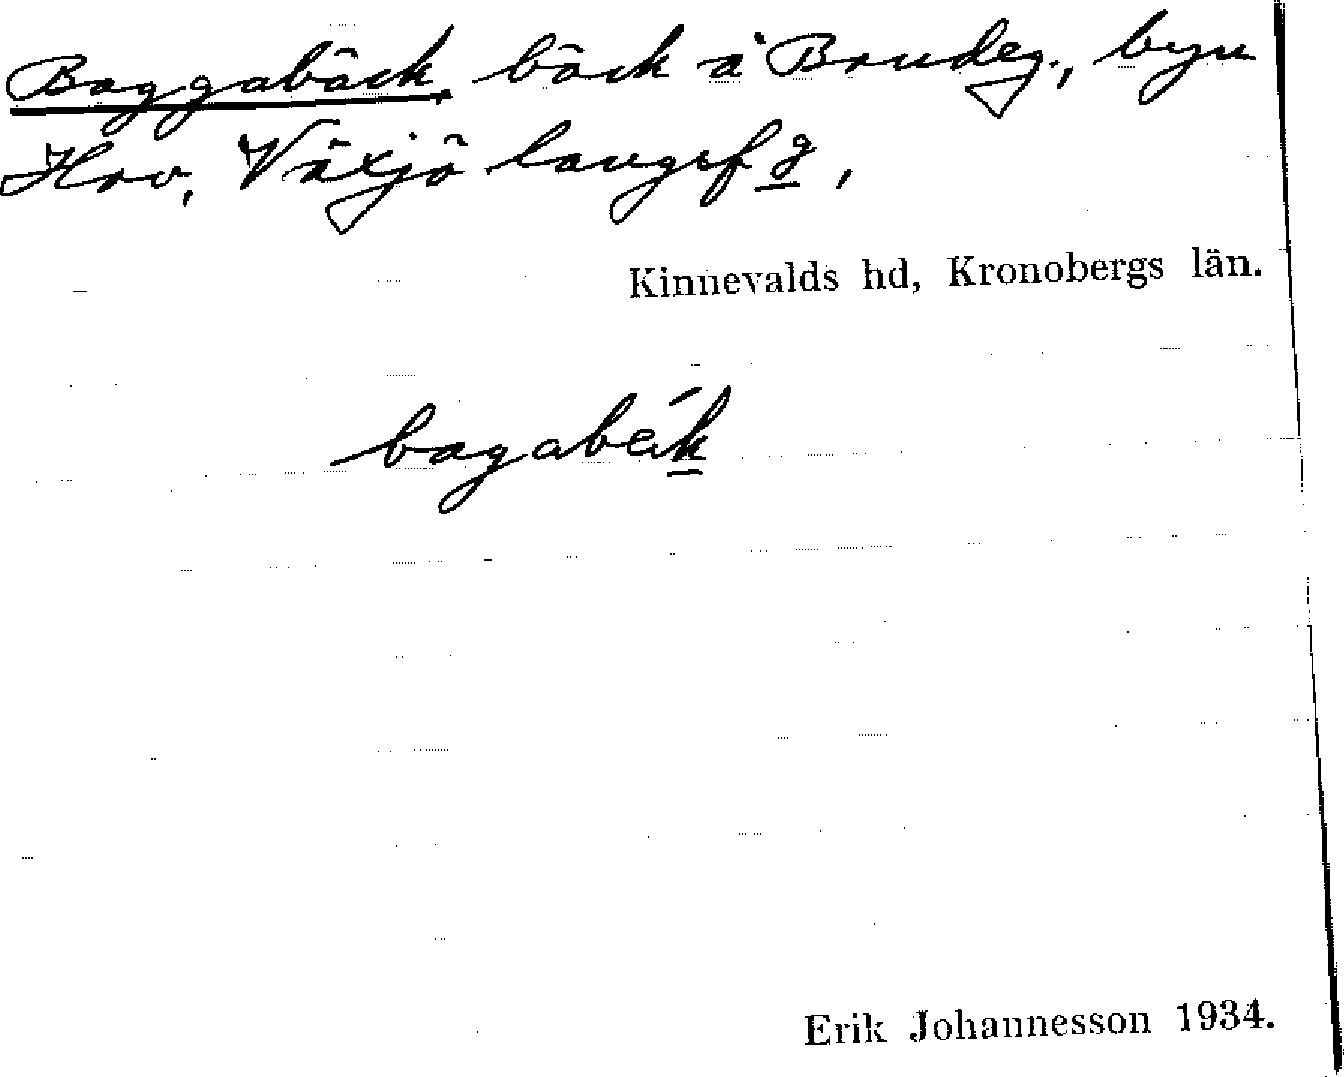 Baggabäck, bäck å Brudeg., byn
Hov, Växjö langsfg,
Kinnevalds hd, Kronobergs län.
bagabäk
Erik Johannesson 1934.